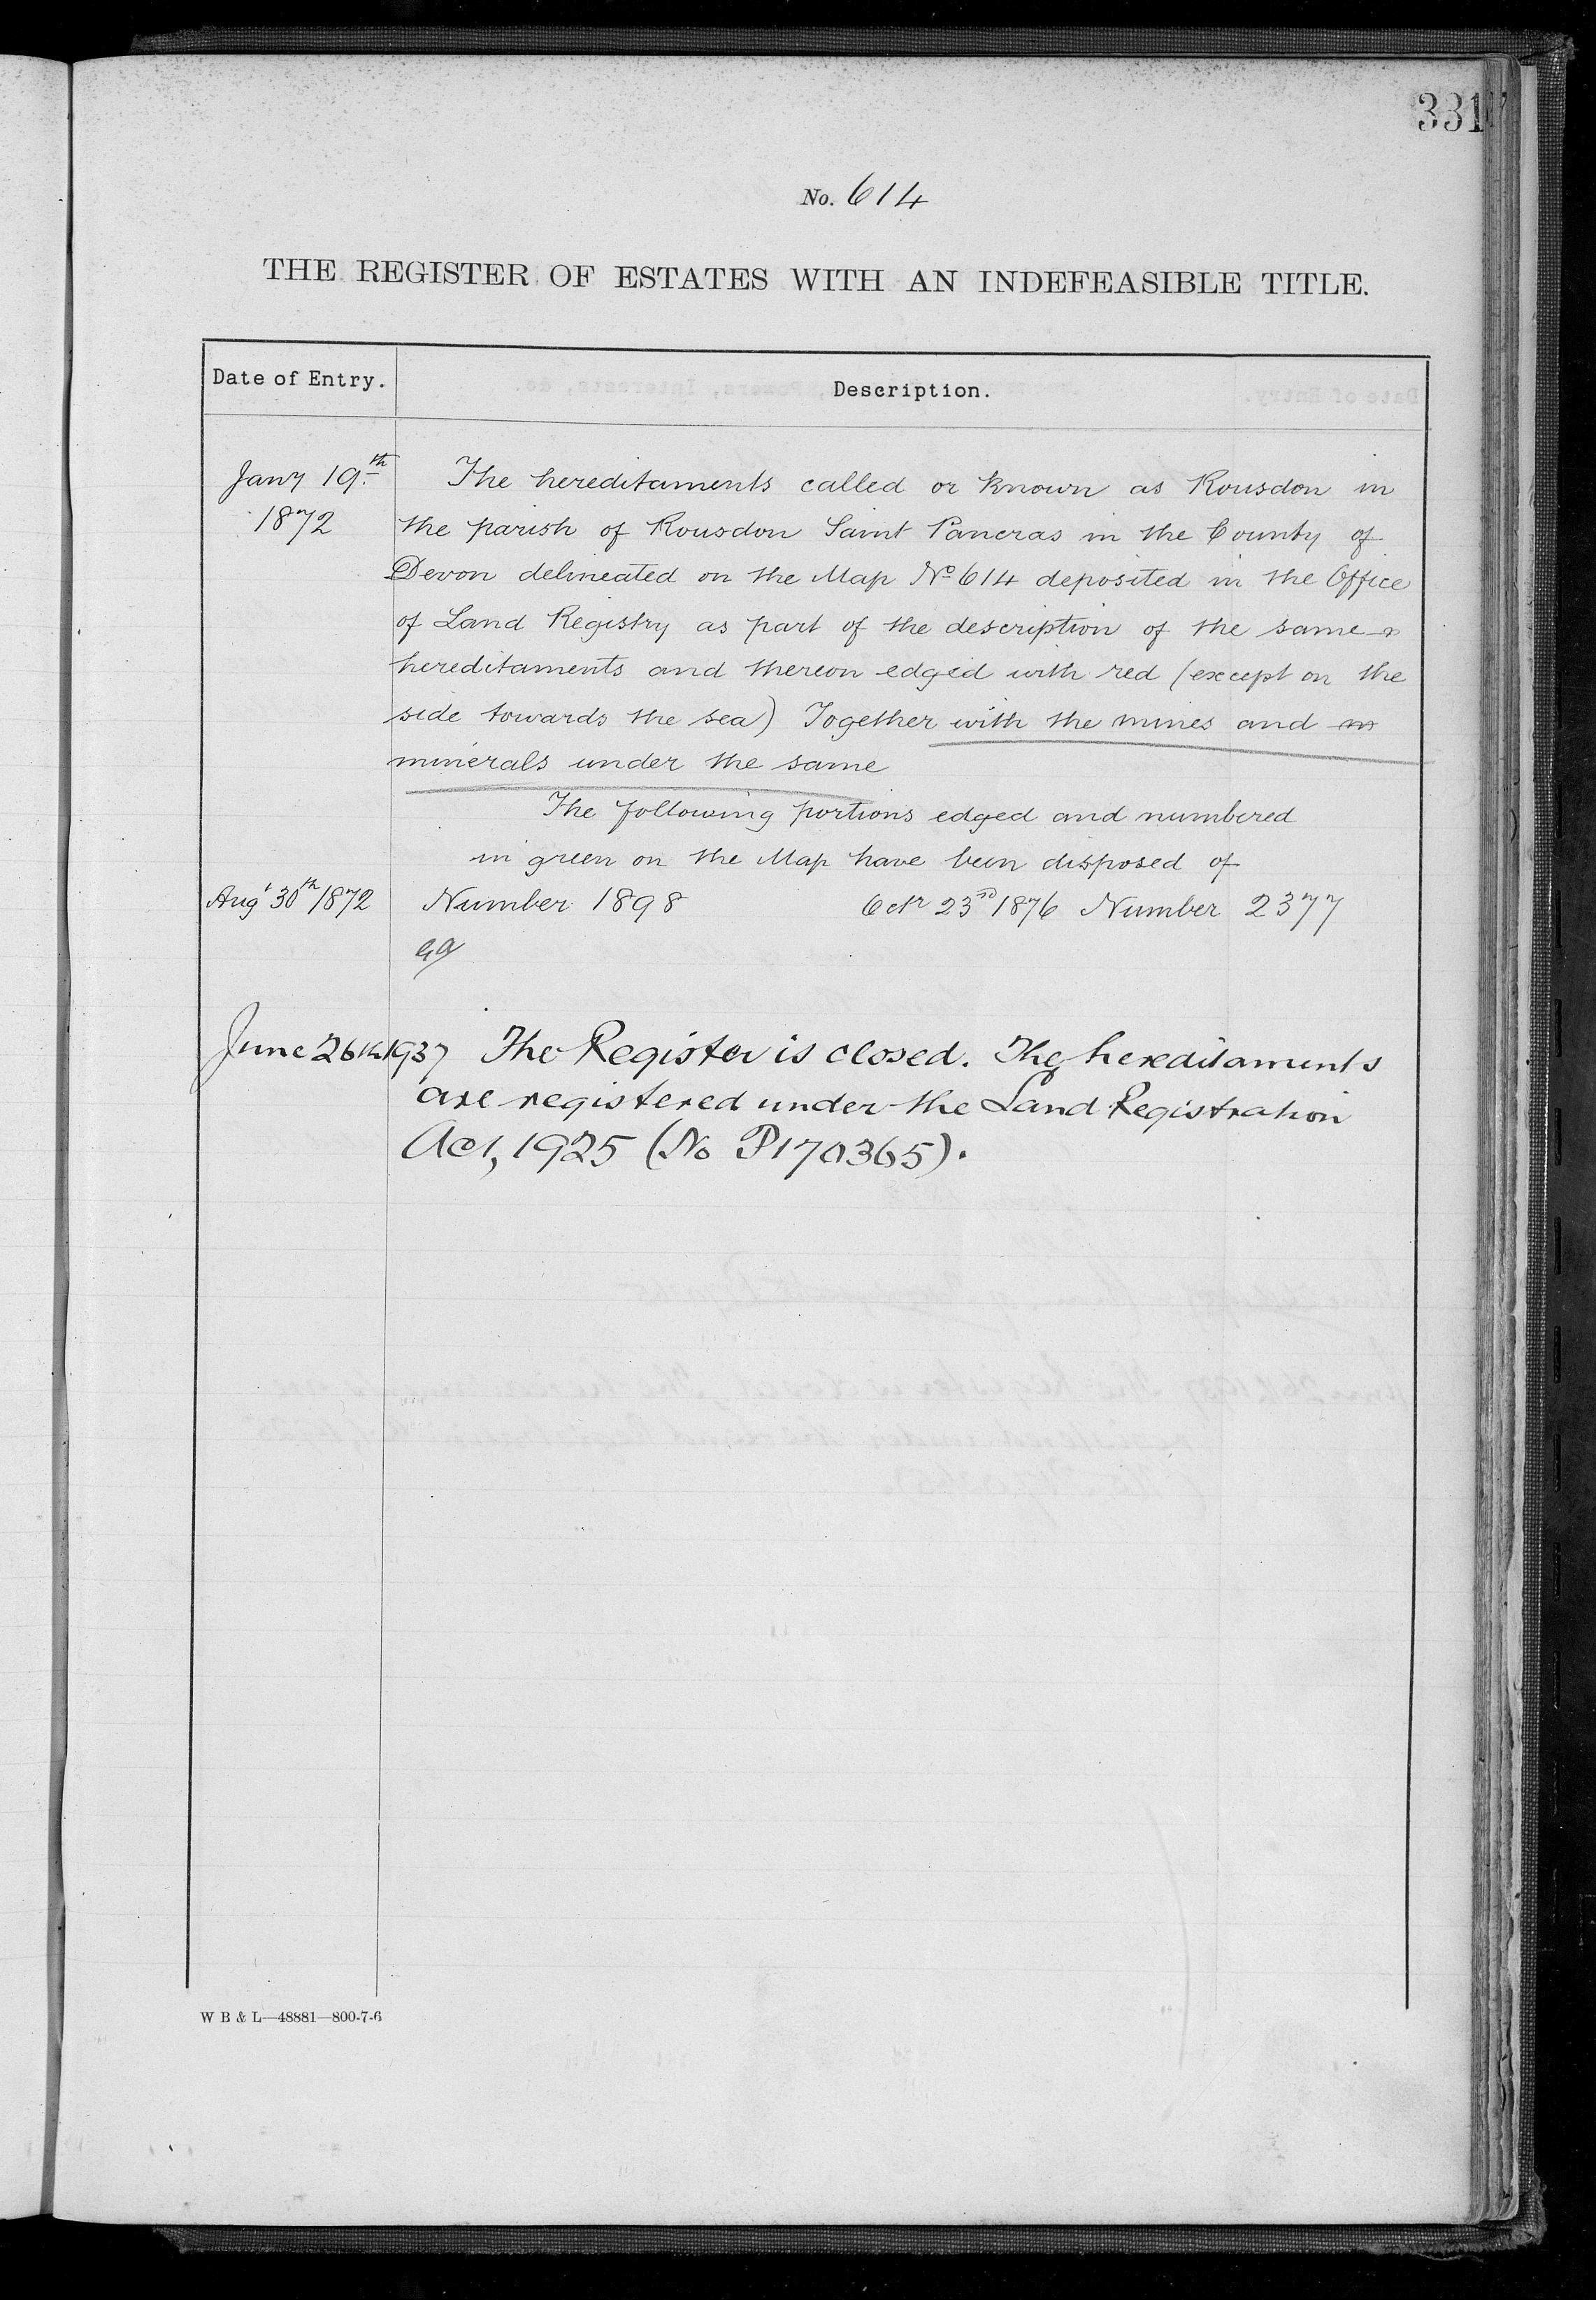 331
No. 614
THE REGISTER OF ESTATES WITH AN INDEFEASIBLE TITLE.
Date of Entry. Description.
Jany 19th The hereditaments called or known as Rousdon in
1872 the parish of Rousdon Saint Pancras in the County of
Devon delineated on the Map No 614 deposited in the Office
of Land Registry as part of the description of the same
hereditaments and thereon edged with red (except on the
side towards the sea) Together with the mines and
minerals under the same
The following portions edged and numbered
in green on the Map have been disposed of
Augt 30th 1872 Number 1898 Octr 23rd 1876 Number 2377
June 26th 1937 The Register is closed. The hereditaments
are registered under the Land Registration
Act, 1925 (No P170365).
W B & L—48881—800-7-6